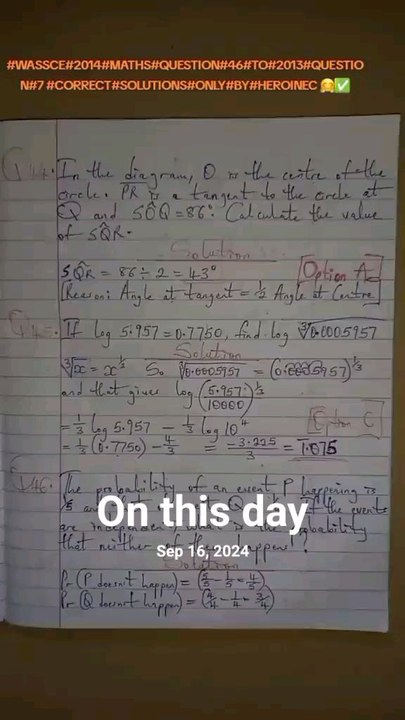 #WASSCE#2014#MATHS#QUESTION#46#TO#2013#QUESTIO
N#7 #CORRECT#SOLUTIONS#ONLY#BY#HEROINEC 😂✅
In the diagram, O is the centre of the
circle. PR is a tangent to the circle at
Q and SÔQ = 86°. Calculate the value
of SQ̂R.
Solution
SQ̂R = 86 ÷ 2 = 43° Option A
Reason: Angle at tangent = ½ Angle at Centre
If log 5.957 = 0.7750, find log ∛0.0005957
Solution
∛x = x^⅓ So ∛0.0005957 = (0.0005957)^⅓
and that gives log (5.957/10000)^⅓
= ⅓ log 5.957 − ⅓ log 10⁴ Option C
= ⅓ (0.7750) − 4/3 = −3.225/3 = 1̄.075
The probability of an event P happening is
⅕ and Q the events
are independent, what is the probability
that neither of them happens?
On this day
Sep 16, 2024
Solution
Pr (P doesn't happen) = (5/5 − 1/5 = 4/5)
Pr (Q doesn't happen) = (4/4 − 1/4 = 3/4)